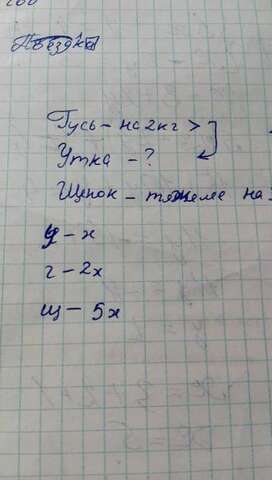 Гусь – на 2 кг >
Утка – ?
Щенок – тяжеле на
у – х
г – 2х
щ – 5х